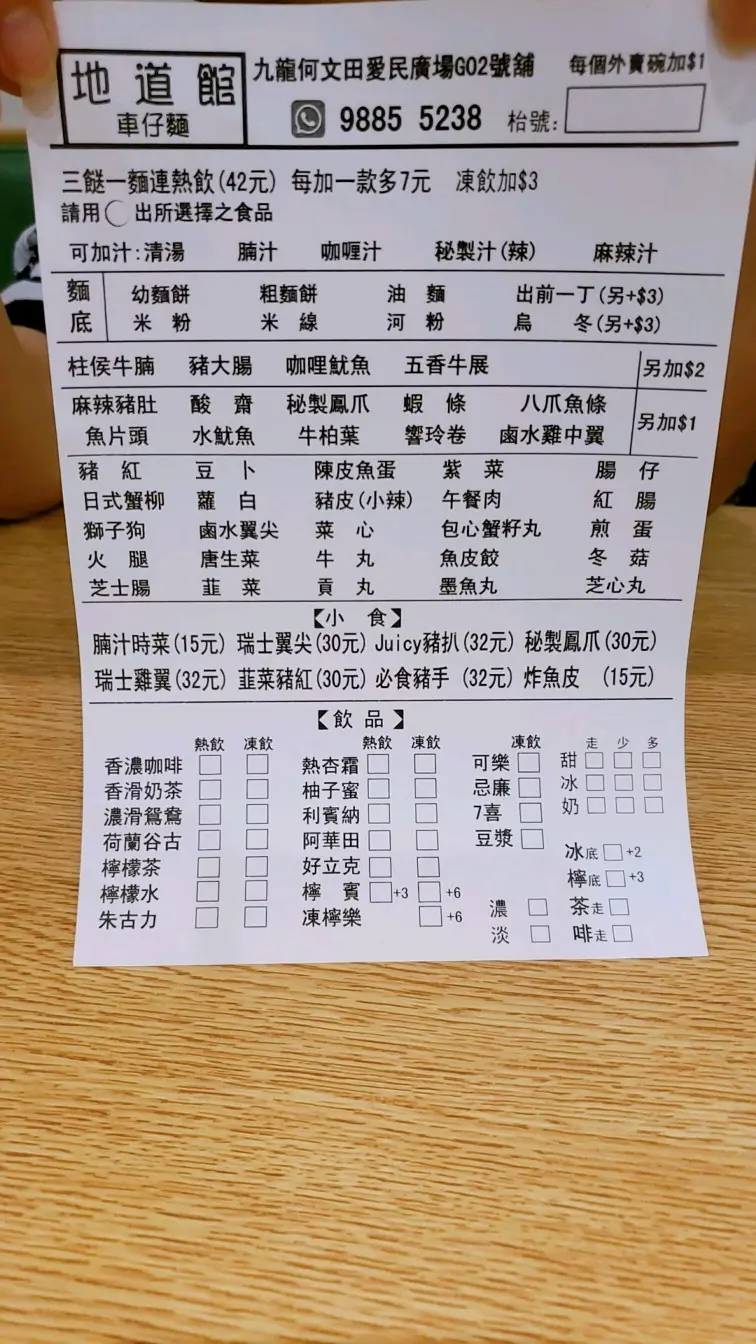 地道館
車仔麵
九龍何文田愛民廣場G02號舖 每個外賣碗加$1
9885 5238 枱號:
三餸一麵連熱飲(42元) 每加一款多7元 凍飲加$3
請用○出所選擇之食品
可加汁:清湯 腩汁 咖喱汁 秘製汁(辣) 麻辣汁
麵底
幼麵餅 粗麵餅 油麵 出前一丁(另+$3)
米粉 米線 河粉 烏冬(另+$3)
柱侯牛腩 豬大腸 咖哩魷魚 五香牛展 另加$2
麻辣豬肚 酸齋 秘製鳳爪 蝦條 八爪魚條 另加$1
魚片頭 水魷魚 牛柏葉 響玲卷 鹵水雞中翼
豬紅 豆卜 陳皮魚蛋 紫菜 腸仔
日式蟹柳 蘿白 豬皮(小辣) 午餐肉 紅腸
獅子狗 鹵水翼尖 菜心 包心蟹籽丸 煎蛋
火腿 唐生菜 牛丸 魚皮餃 冬菇
芝士腸 韮菜 貢丸 墨魚丸 芝心丸
【小食】
腩汁時菜(15元) 瑞士翼尖(30元) Juicy豬扒(32元) 秘製鳳爪(30元)
瑞士雞翼(32元) 韮菜豬紅(30元) 必食豬手 (32元) 炸魚皮 (15元)
【飲品】
熱飲 凍飲 熱飲 凍飲 凍飲 走 少 多
香濃咖啡 熱杏霜 可樂 甜
香滑奶茶 柚子蜜 忌廉 冰
濃滑鴛鴦 利賓納 7喜 奶
荷蘭谷古 阿華田 豆漿
檸檬茶 好立克 冰底 +2
檸檬水 檸賓 +3 +6 檸底 +3
朱古力 凍檸樂 +6 濃 茶走
淡 啡走